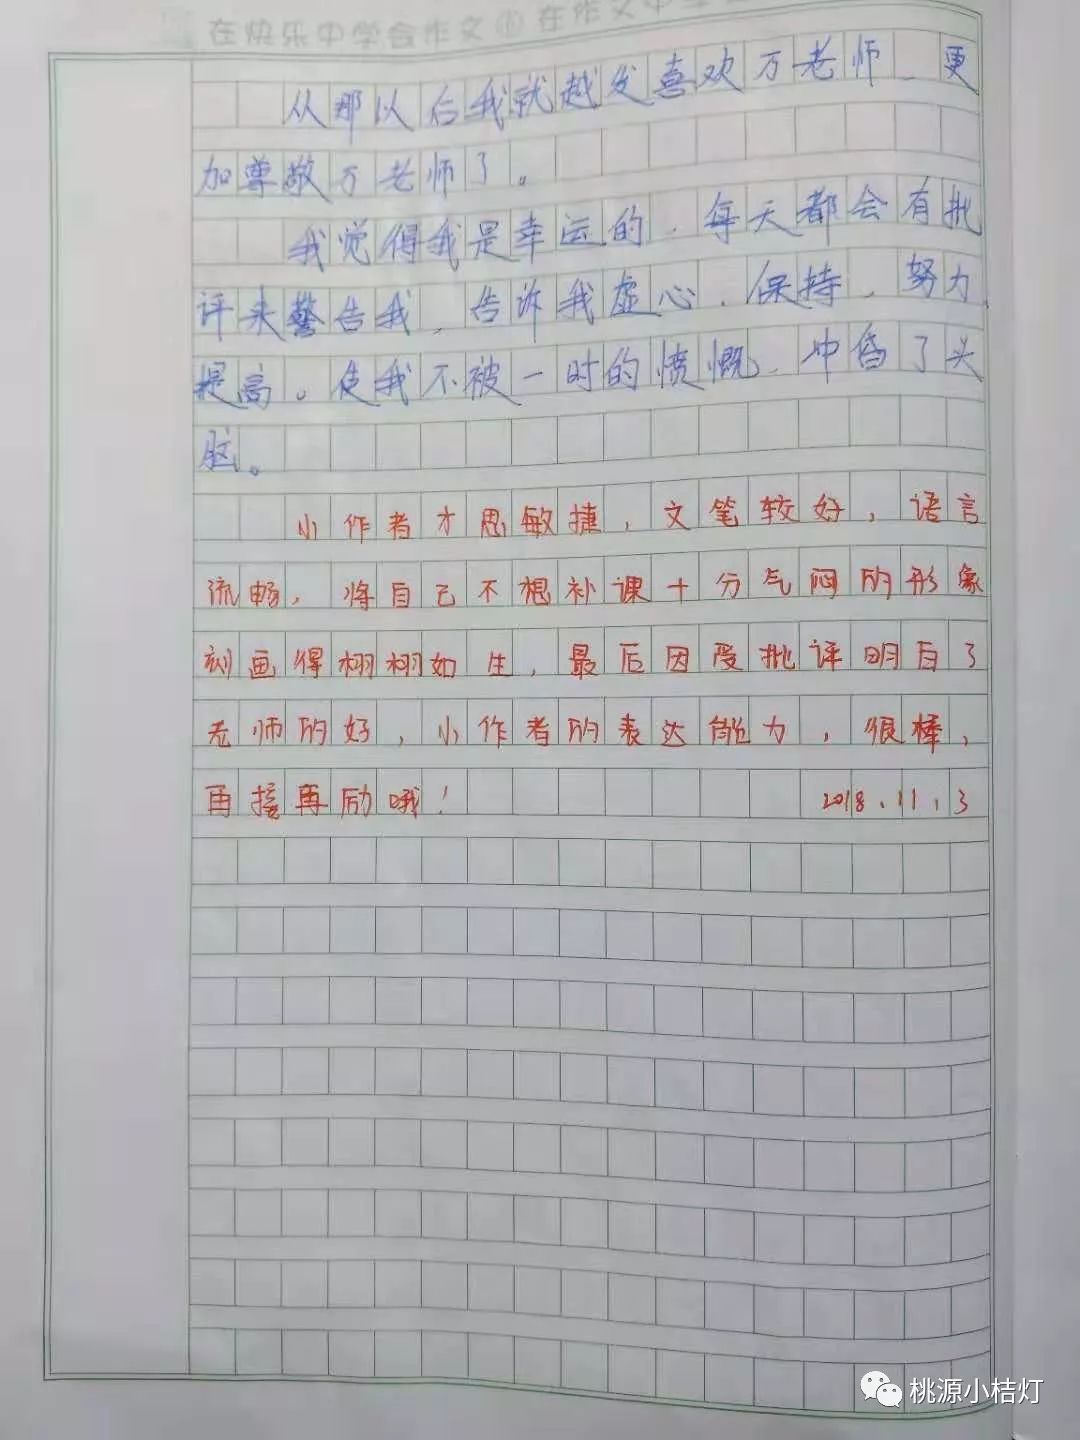 在快乐中学会作文 在作文中学
从那以后我就越发喜欢万老师、更
加尊敬万老师了。
我觉得我是幸运的，每天都会有批
评来警告我，告诉我虚心、保持、努力
提高。使我不被一时的愤慨、冲昏了头
脑。
小作者才思敏捷，文笔较好，语言
流畅，将自己不想补课十分气闷的形象
刻画得栩栩如生，最后因受批评明白了
老师的好，小作者的表达能力，很棒，
再接再励哦！ 2018.11.3
桃源小桔灯